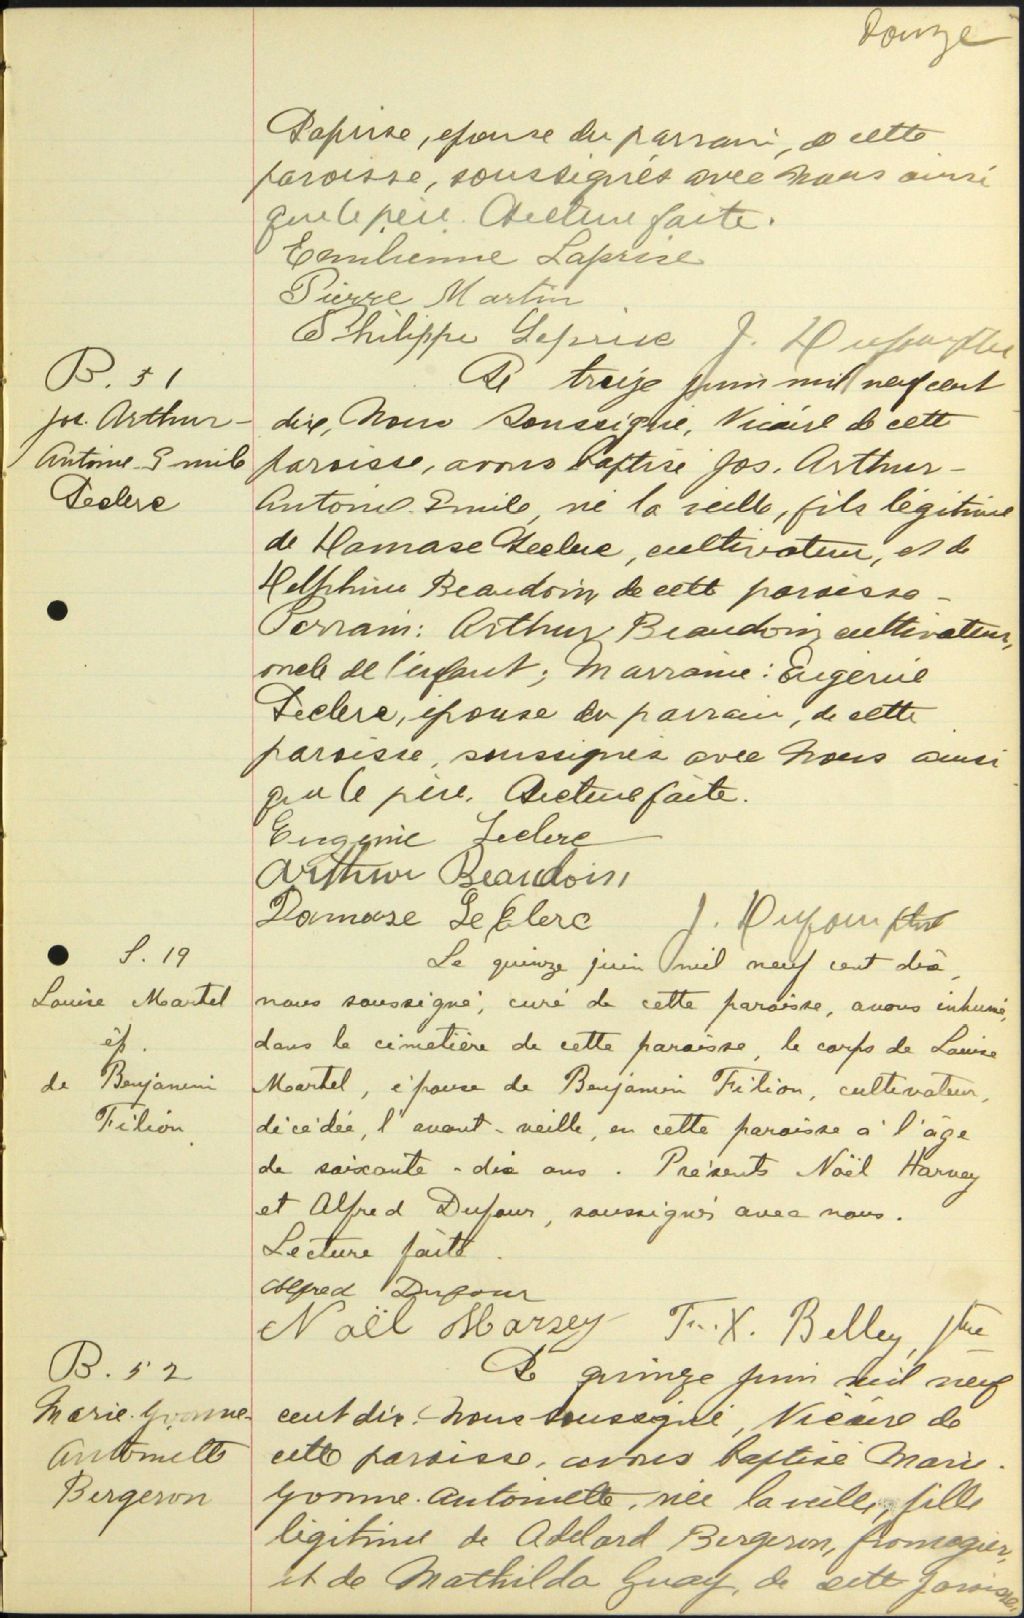 Douze
Laprise, épouse du parrain, de cette
paroisse, soussignés avec nous ainsi
que le père. Lecture faite.
Emilienne Laprise
Pierre Martin
Philippe Laprise J. Dufour ptre
B. 51
Jos. Arthur-
Antoine-Emile
Leclerc
Le treize juin mil neuf cent
dix, Nous soussigné, Vicaire de cette
paroisse, avons baptisé Jos. Arthur-
Antoine-Emile, né la veille, fils légitime
de Damase Leclerc, cultivateur, et de
Delphine Beaudoin de cette paroisse-
Parrain: Arthur Beaudoin cultivateur,
oncle de l'enfant; Marraine: Eugénie
Leclerc, épouse du parrain, de cette
paroisse, soussignés avec Nous ainsi
que le père. Lecture faite.
Eugenie Leclerc
Arthur Beaudoin
Damase LeClerc J. Dufour ptre
S. 19
Louise Martel
ép.
de Benjamin
Filion
Le quinze juin mil neuf cent dix,
nous soussigné, curé de cette paroisse, avons inhumé,
dans le cimetière de cette paroisse, le corps de Louise
Martel, épouse de Benjamin Filion, cultivateur,
décédée, l'avant-veille, en cette paroisse à l'âge
de soixante-dix ans. Présents Noël Harvey
et Alfred Dufour, soussignés avec nous.
Lecture faite.
Alfred Dufour
Noël Harvey F.-X. Belley, ptre
B. 52
Marie-Yvonne-
Antoinette
Bergeron
Le quinze juin mil neuf
cent dix. Nous soussigné, Vicaire de
cette paroisse, avons baptisé Marie-
Yvonne-Antoinette, née la veille, fille
légitime de Adélard Bergeron, fromagier,
et de Mathilda Guay, de cette paroisse,